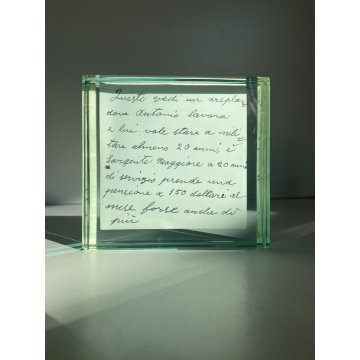 Questo vedi un areplan
dove Antonio lavora
e lui vole stare a mili-
tare almeno 20 anni, è
Sargente Maggiore a 20 anni
di servizio prende una
pensione a 150 dollare al
mese forse anche di
più